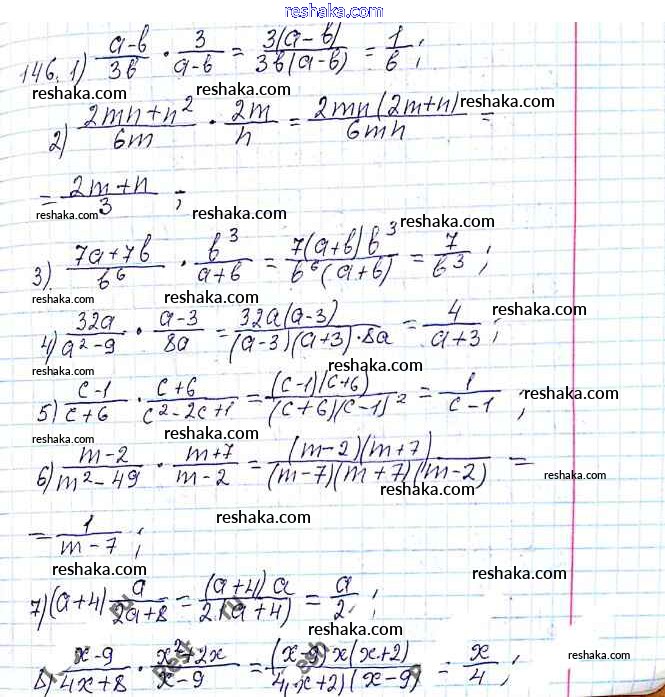 www.reshaka.com
146. 1) (a-b)/(3b) · 3/(a-b) = 3(a-b)/(3b(a-b)) = 1/b ;
reshaka.com reshaka.com reshaka.com
2) (2mn+n²)/(6m) · 2m/n = 2mn(2m+n)/(6mn) =
reshaka.com reshaka.com
= (2m+n)/3 ;
reshaka.com reshaka.com reshaka.com
3) (7a+7b)/b⁶ · b³/(a+b) = 7(a+b)b³/(b⁶(a+b)) = 7/b³ ;
reshaka.com reshaka.com reshaka.com
4) 32a/(a²-9) · (a-3)/(8a) = 32a(a-3)/((a-3)(a+3)·8a) = 4/(a+3) ;
reshaka.com reshaka.com
5) (c-1)/(c+6) · (c+6)/(c²-2c+1) = (c-1)(c+6)/((c+6)(c-1)²) = 1/(c-1) ;
reshaka.com reshaka.com reshaka.com
6) (m-2)/(m²-49) · (m+7)/(m-2) = (m-2)(m+7)/((m-7)(m+7)(m-2)) =
reshaka.com reshaka.com
= 1/(m-7) ;
reshaka.com
reshaka.com reshaka.com
7) (a+4) · a/(2a+8) = (a+4)a/(2(a+4)) = a/2 ;
reshaka.com
8) (x-9)/(4x+8) · (x²+2x)/(x-9) = (x-9)x(x+2)/(4(x+2)(x-9)) = x/4 ;
reshaka.com reshaka.com